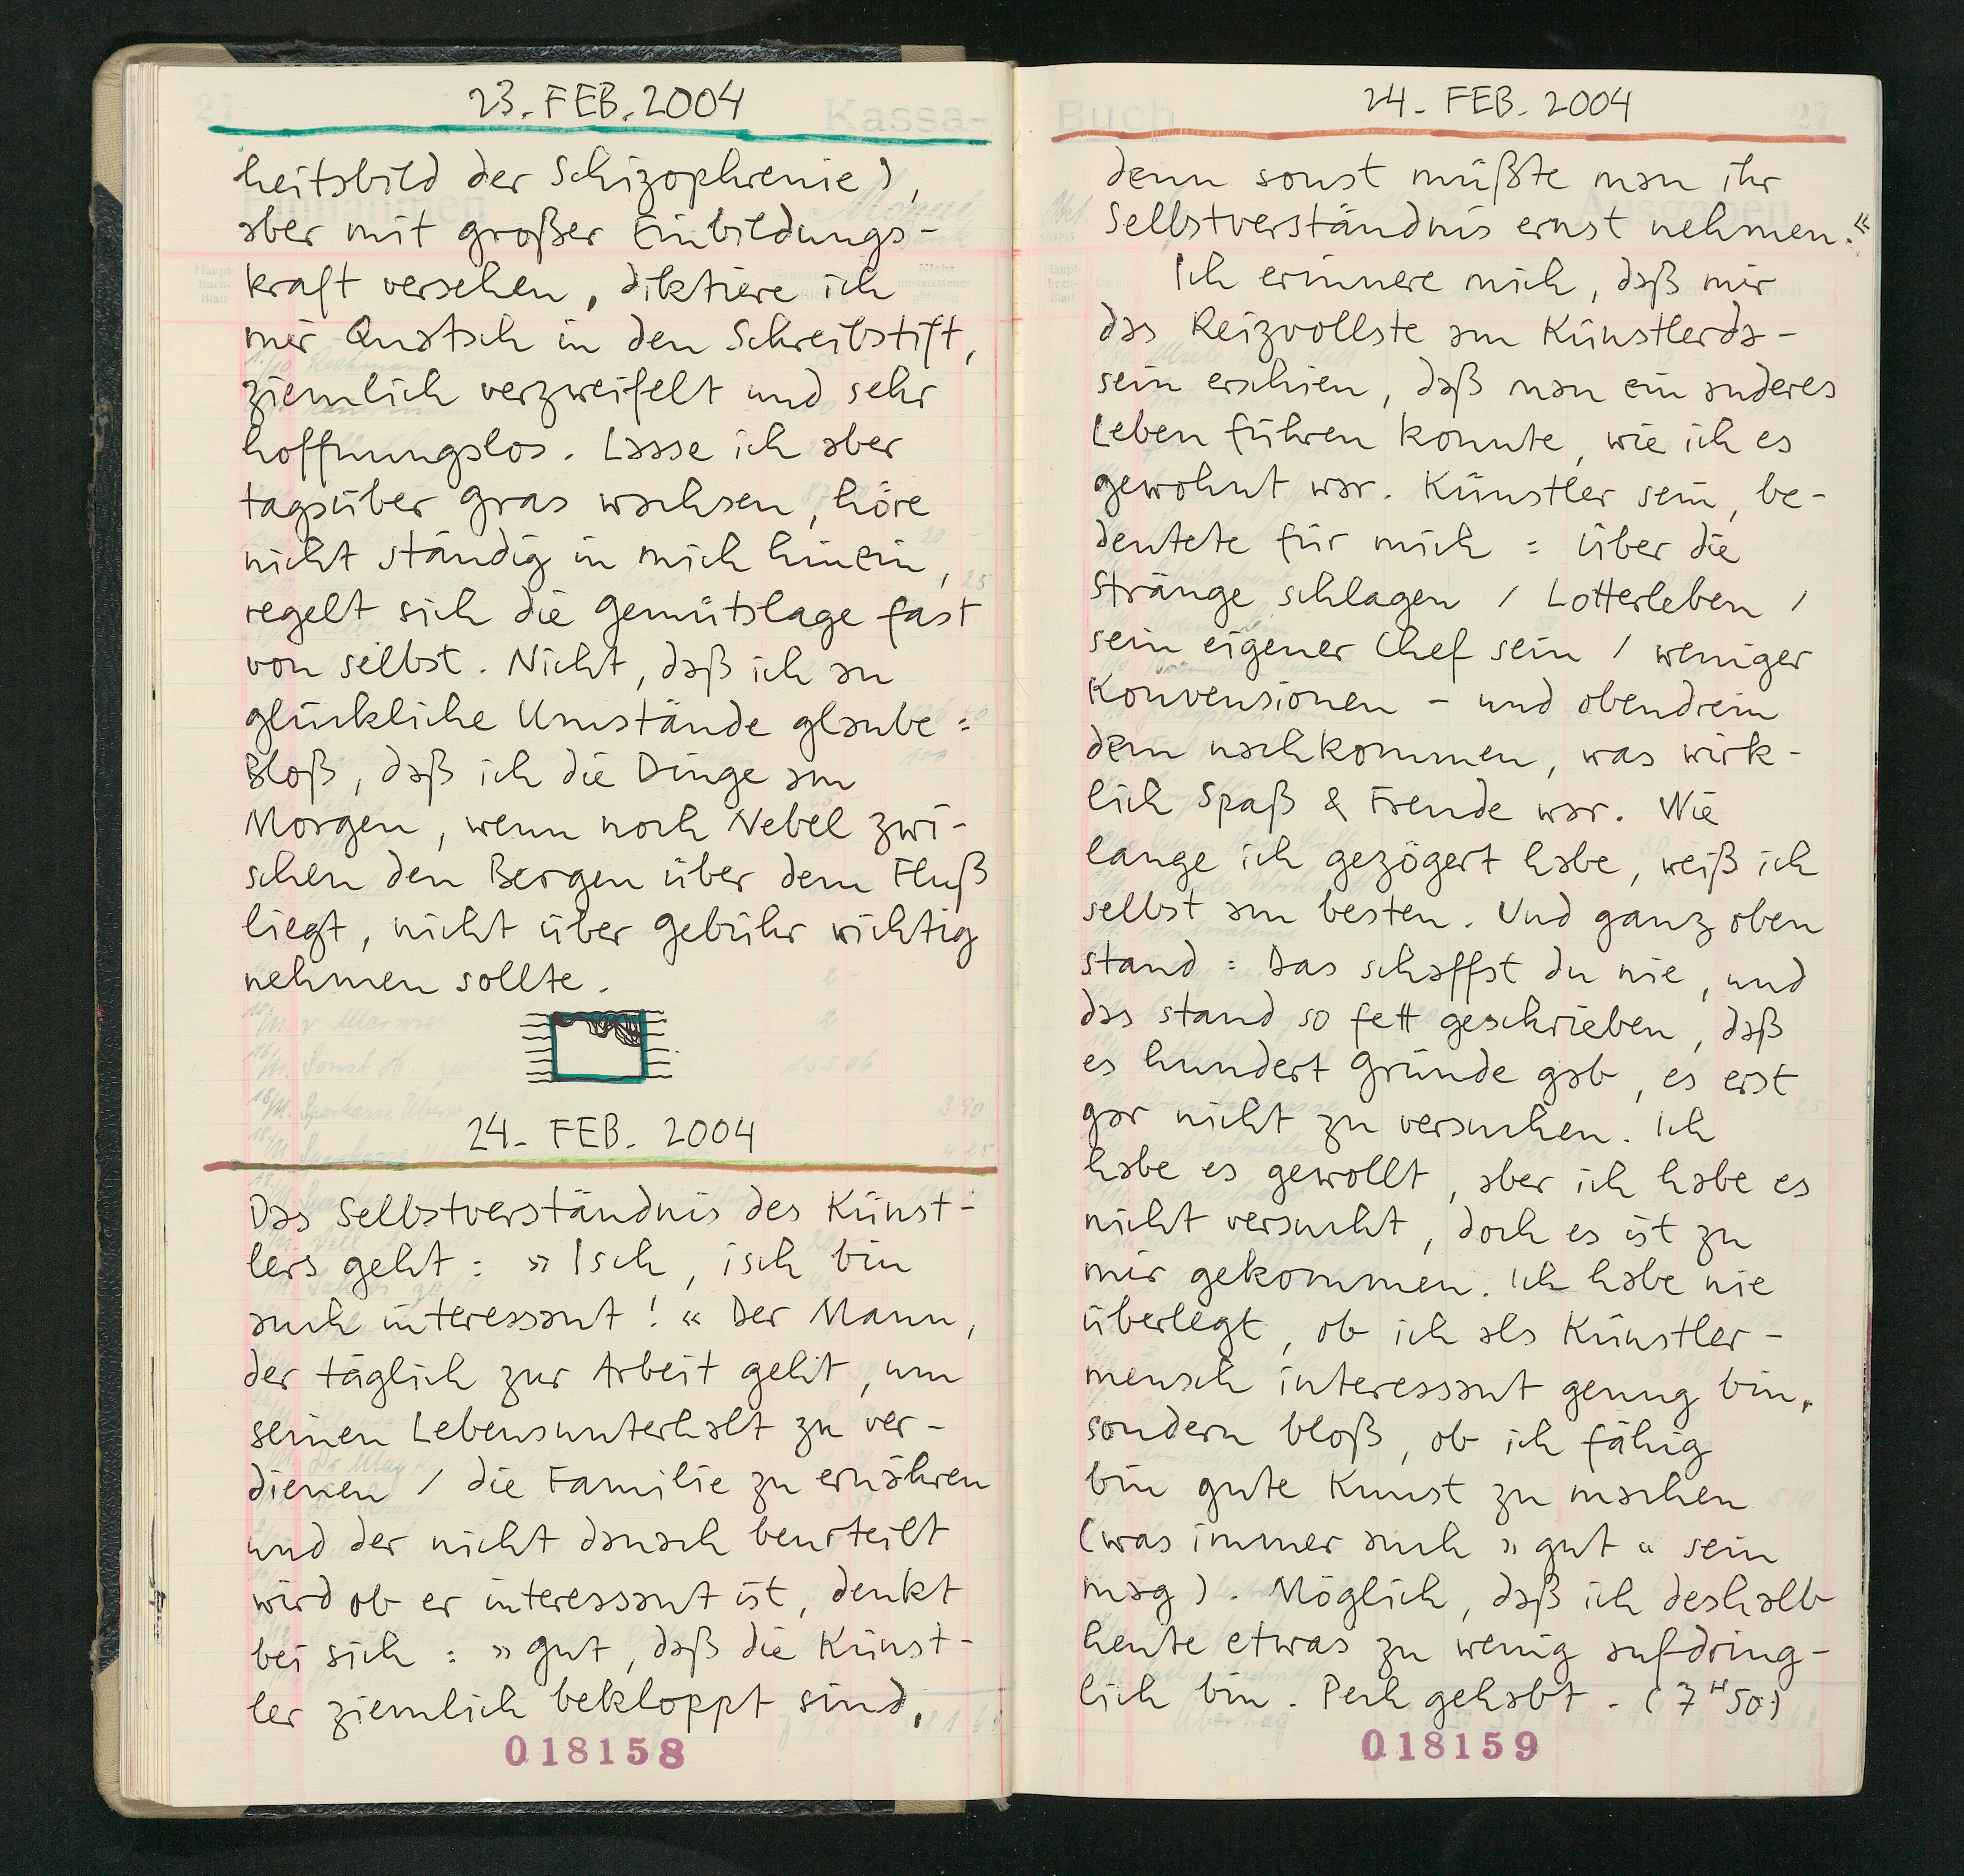 23. FEB. 2004
heitsbild der Schizophrenie),
aber mit großer Einbildungs-
kraft versehen, diktiere ich
mir Quatsch in den Schreibstift,
ziemlich verzweifelt und sehr
hoffnungslos. Lasse ich aber
tagsüber Gras wachsen, höre
nicht ständig in mich hinein,
regelt sich die Gemütslage fast
von selbst. Nicht, daß ich an
glückliche Umstände glaube:
Bloß, daß ich die Dinge am
Morgen, wenn noch Nebel zwi-
schen den Bergen über dem Fluß
liegt, nicht über Gebühr wichtig
nehmen sollte.
24. FEB. 2004
Das Selbstverständnis des Künst-
lers geht: »Isch, isch bin
auch interessant!« Der Mann,
der täglich zur Arbeit geht, um
seinen Lebensunterhalt zu ver-
dienen / die Familie zu ernähren
und der nicht danach beurteilt
wird ob er interessant ist, denkt
bei sich: »gut, daß die Künst-
ler ziemlich bekloppt sind,
018158
Kassa-
Buch
27
24. FEB. 2004
denn sonst müßte man ihr
Selbstverständnis ernst nehmen.«
Ich erinnere mich, daß mir
das Reizvollste am Künstlerda-
sein erschien, daß man ein anderes
Leben führen konnte, wie ich es
gewohnt war. Künstler sein, be-
deutete für mich: über die
Stränge schlagen / Lotterleben /
sein eigener Chef sein / weniger
Konvensionen - und obendrein
dem nachkommen, was wirk-
lich Spaß & Freude war. Wie
lange ich gezögert habe, weiß ich
selbst am besten. Und ganz oben
stand: Das schaffst du nie, und
das stand so fett geschrieben, daß
es hundert Gründe gab, es erst
gar nicht zu versuchen. Ich
habe es gewollt, aber ich habe es
nicht versucht, doch es ist zu
mir gekommen. Ich habe nie
überlegt, ob ich als Künstler-
mensch interessant genug bin,
sondern bloß, ob ich fähig
bin gute Kunst zu machen
(was immer auch »gut« sein
mag). Möglich, daß ich deshalb
heute etwas zu wenig aufdring-
lich bin. Pech gehabt. (7 H 50)
018159